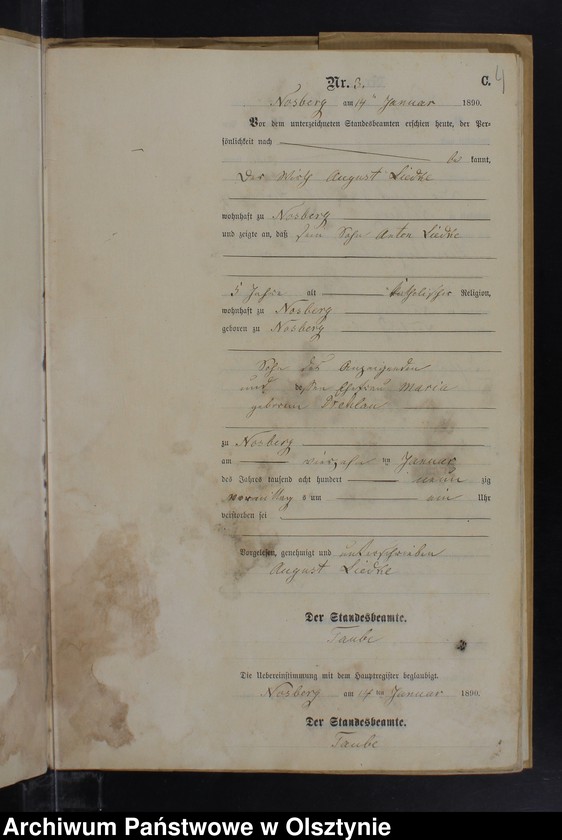 Nr. 3. C. 4
Nosberg am 14ten Januar 1890.
Vor dem unterzeichneten Standesbeamten erschien heute, der Per-
sönlichkeit nach
be kannt,
Der Wirth August Liedke
wohnhaft zu Nosberg
und zeigte an, daß sein Sohn Anton Liedke
5 Jahre alt katholischer Religion,
wohnhaft zu Nosberg
geboren zu Nosberg
Sohn des Anzeigenden
und dessen Ehefrau Maria
geborene
zu Nosberg
am vierzehn ten Januar
des Jahres tausend acht hundert neun zig
Vormittags um ein Uhr
verstorben sei
Vorgelesen, genehmigt und unterschrieben
August Liedke
Der Standesbeamte.
Taube
Die Uebereinstimmung mit dem Hauptregister beglaubigt.
Nosberg am 14 ten Januar 1890.
Der Standesbeamte.
Taube
Archiwum Państwowe w Olsztynie